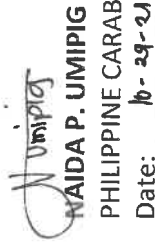 Umipig
NAIDA P. UMIPIG
PHILIPPINE CARAB
Date: 10-29-21